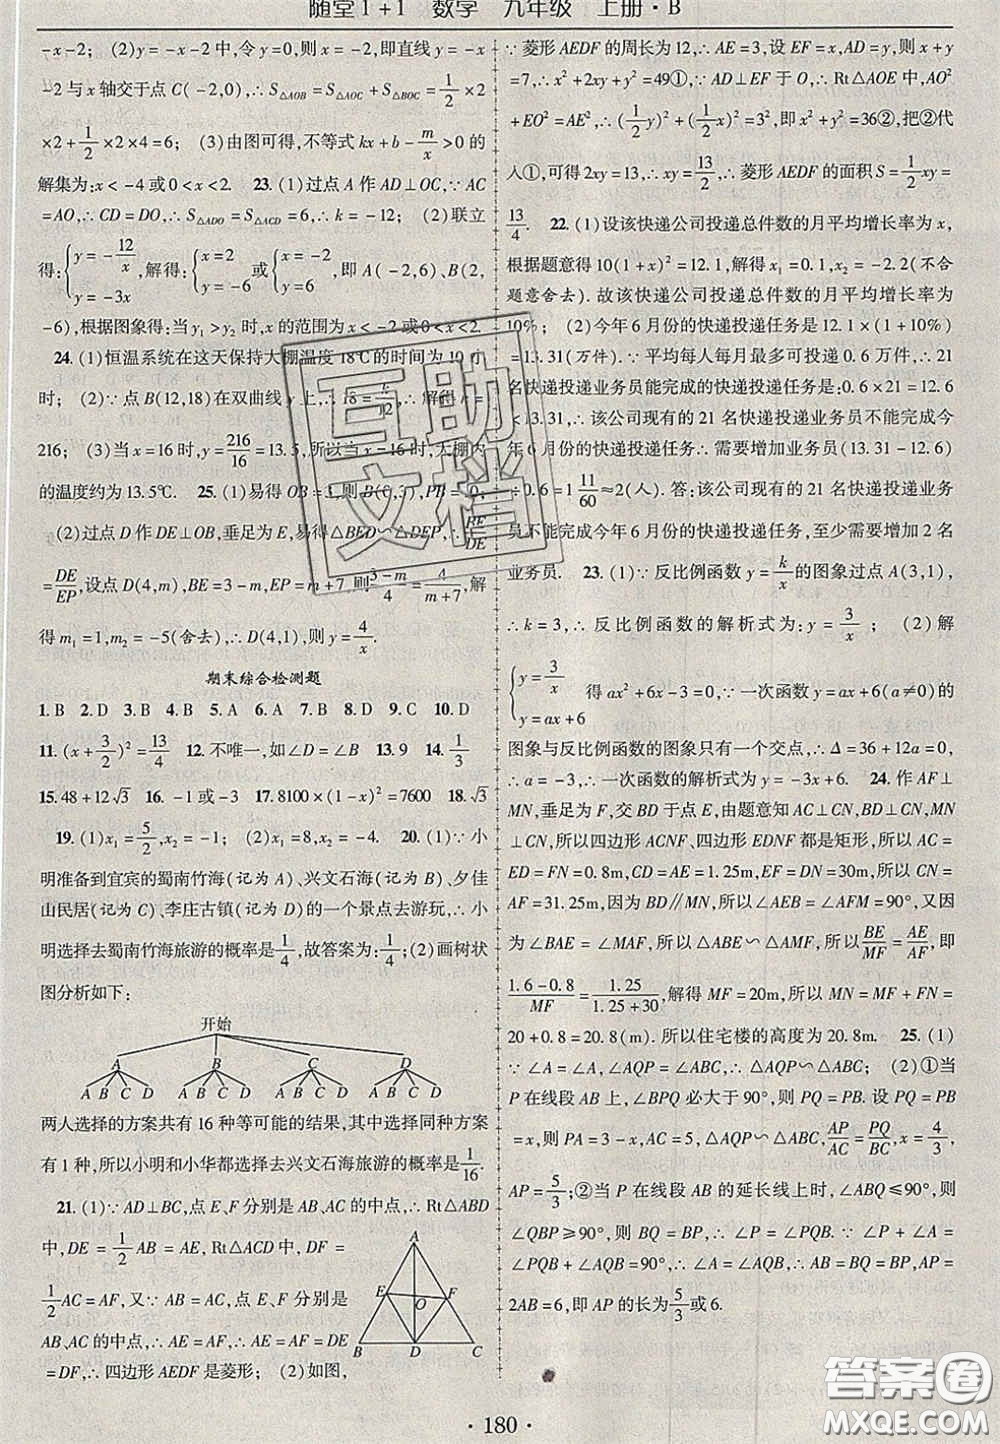 随堂1+1 数学 九年级 上册·B
-x-2; (2)y=-x-2中,令y=0,则x=-2,即直线y=-x
-2与x轴交于点C(-2,0),∴S△AOB=S△AOC+S△BOC=1/2×2
×2+1/2×2×4=6; (3)由图可得,不等式kx+b-m/x>0的
解集为:x<-4或0<x<2. 23. (1)过点A作AD⊥OC,∵AC
=AO,∴CD=DO,∴S△ADO=S△ACD=6,∴k=-12; (2)联立
得:{y=-12/x, y=-3x,解得:{x=2 y=-6或{x=-2 y=6,即A(-2,6)、B(2,
-6),根据图象得:当y₁>y₂时,x的范围为x<-2或0<x<2.
24. (1)恒温系统在这天保持大棚温度18℃的时间为10小
时; (2)∵点B(12,18)在双曲线y=k/x上,∴18=k/12,解得k=
216; (3)当x=16时,y=216/16=13.5,所以当x=16时,大棚内
的温度约为13.5℃. 25. (1)易得OB=3,则B(0,3),PB=
(2)过点D作DE⊥OB,垂足为E,易得△BED∽△DEP,∴BE/DE
=DE/EP,设点D(4,m),BE=3-m,EP=m+7,则(3-m)/4=4/(m+7),解
得m₁=1,m₂=-5(舍去),∴D(4,1),则y=4/x.
期末综合检测题
1. B 2. D 3. B 4. B 5. A 6. A 7. B 8. D 9. C 10. D
11. (x+3/2)²=13/4 12. 不唯一,如∠D=∠B 13. 9 14. 1/3
15. 48+12√3 16. -1或-3 17. 8100×(1-x)²=7600 18. √3
19. (1)x₁=5/2,x₂=-1; (2)x₁=8,x₂=-4. 20. (1)∵小
明准备到宜宾的蜀南竹海(记为A)、兴文石海(记为B)、夕佳
山民居(记为C)、李庄古镇(记为D)的一个景点去游玩,∴小
明选择去蜀南竹海旅游的概率是1/4,故答案为:1/4;(2)画树状
图分析如下:
开始
A B C D
A B C D A B C D A B C D A B C D
两人选择的方案共有16种等可能的结果,其中选择同种方案
有1种,所以小明和小华都选择去兴文石海旅游的概率是1/16.
21. (1)∵AD⊥BC,点E、F分别是AB、AC的中点,Rt△ABD
中,DE=1/2AB=AE,Rt△ACD中,DF=
1/2AC=AF,又∵AB=AC,点E、F分别是
AB、AC的中点,∴AE=AF,∴AE=AF=DE
=DF,∴四边形AEDF是菱形; (2)如图,
A
E O F
B D C
∵菱形AEDF的周长为12,∴AE=3,设EF=x,AD=y,则x+y
=7,∴x²+2xy+y²=49①,∵AD⊥EF于O,∴Rt△AOE中,AO²
+EO²=AE²,∴(1/2y)²+(1/2x)²=3²,即x²+y²=36②,把②代
入①,可得2xy=13,∴xy=13/2,∴菱形AEDF的面积S=1/2xy=
13/4. 22. (1)设该快递公司投递总件数的月平均增长率为x,
根据题意得10(1+x)²=12.1,解得x₁=0.1,x₂=-2.2(不合
题意舍去).故该快递公司投递总件数的月平均增长率为
10%; (2)今年6月份的快递投递任务是12.1×(1+10%)
=13.31(万件).∵平均每人每月最多可投递0.6万件,∴21
名快递投递业务员能完成的快递投递任务是:0.6×21=12.6
<13.31,∴该公司现有的21名快递投递业务员不能完成今
年6月份的快递投递任务∴需要增加业务员(13.31-12.6)
÷0.6=1 11/60≈2(人).答:该公司现有的21名快递投递业务
员不能完成今年6月份的快递投递任务,至少需要增加2名
业务员. 23. (1)∵反比例函数y=k/x的图象过点A(3,1),
∴k=3,∴反比例函数的解析式为:y=3/x; (2)解
{y=3/x y=ax+6 得ax²+6x-3=0,∵一次函数y=ax+6(a≠0)的
图象与反比例函数的图象只有一个交点,∴Δ=36+12a=0,
∴a=-3,∴一次函数的解析式为y=-3x+6. 24. 作AF⊥
MN,垂足为F,交BD于点E,由题意知AC⊥CN,BD⊥CN,MN
⊥CN,所以四边形ACNF、四边形EDNF都是矩形,所以AC=
ED=FN=0.8m,CD=AE=1.25m,EF=DN=30m,所以CN
=AF=31.25m,因为BD∥MN,所以∠AEB=∠AFM=90°,又因
为∠BAE=∠MAF,所以△ABE∽△AMF,所以BE/MF=AE/AF,即
(1.6-0.8)/MF=1.25/(1.25+30),解得MF=20m,所以MN=MF+FN=
20+0.8=20.8(m).所以住宅楼的高度为20.8m. 25. (1)
∵∠A=∠A,∠AQP=∠ABC,∴△AQP∽△ABC; (2)①当
P在线段AB上时,∠BPQ必大于90°,则PQ=PB.设PQ=PB
=x,则PA=3-x,AC=5,∵△AQP∽△ABC,AP/AC=PQ/BC,x=4/3,
AP=5/3;②当P在线段AB的延长线上时,∠AQP≤90°,则
∠QBP≥90°,则BQ=BP,∴∠P=∠PQB.∵∠P+∠A=
∠PQB+∠AQB=90°,∴∠A=∠AQB,∴AB=BQ=BP,AP=
2AB=6,即AP的长为5/3或6.
· 180 ·
互助文档
答案圈
MXQE.COM